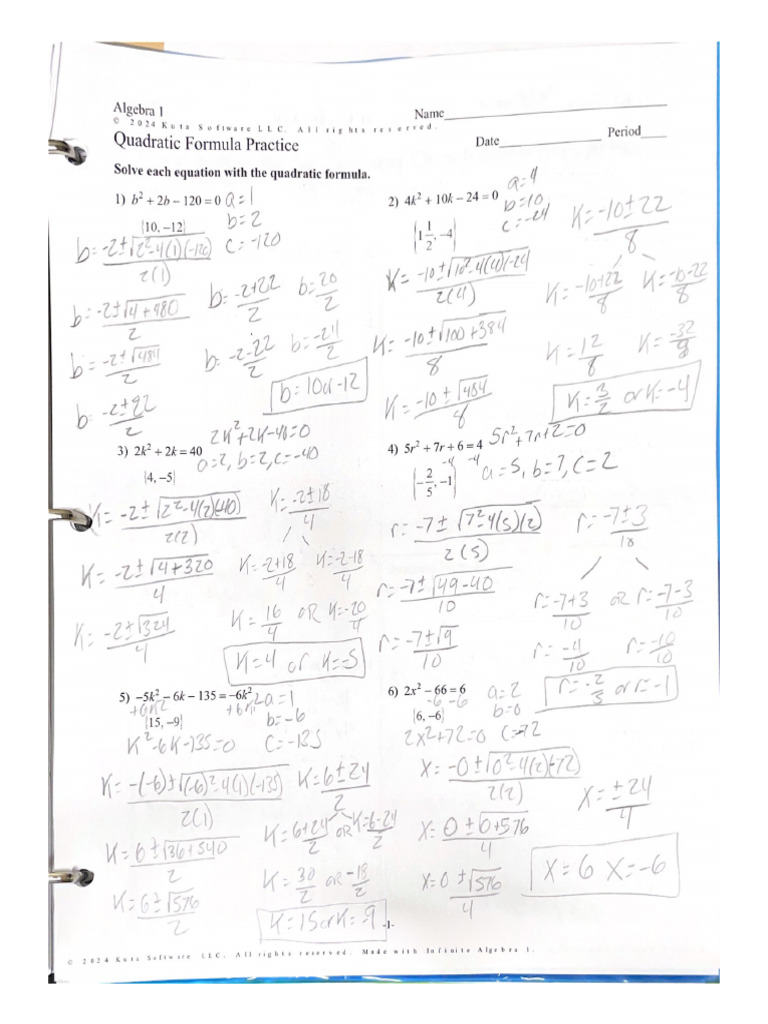 Algebra 1
Name
© 2024 Kuta Software LLC. All rights reserved.
Quadratic Formula Practice
Date Period
Solve each equation with the quadratic formula.
1) b² + 2b − 120 = 0 a=1
b=2
c=-120
{10, −12}
b=-2±√2²-4(1)(-120)/2(1)
b=-2±√4+480/2
b=-2±√484/2
b=-2±22/2
b=-2+22/2 b=20/2
b=-2-22/2 b=-24/2
b=10or-12
2) 4k² + 10k − 24 = 0 a=4
b=10
c=-24
{1 1/2, −4}
K=-10±√10²-4(4)(-24/2(4)
K=-10±√100+384/8
K=-10±√484/8
K=-10±22/8
K=-10+22/8 K=-10-22/8
K=12/8 K=-32/8
K=3/2 or K=-4
3) 2k² + 2k = 40 2K²+2K-40=0
a=2, b=2, c=-40
{4, −5}
K=-2±√2²-4(2)(-40)/2(2)
K=-2±√4+320/4
K=-2±√324/4
K=-2±18/4
K=-2+18/4 K=-2-18/4
K=16/4 OR K=-20/4
K=4 or K=-5
4) 5r² + 7r + 6 = 4 5r²+7r+2=0
-4 -4
a=5, b=7, c=2
{−2/5, −1}
r=-7±√7²-4(5)(2)/2(5)
r=-7±√49-40/10
r=-7±√9/10
r=-7±3/10
r=-7+3/10 OR r=-7-3/10
r=-4/10 r=-10/10
r=-2/5 or r=-1
5) −5k² − 6k − 135 = −6k² a=1
+6K² +6K²
b=-6
c=-135
{15, −9}
K²-6K-135=0
K=-(-6)±√(-6)²-4(1)(-135)/2(1)
K=6±√36+540/2
K=6±√576/2
K=6±24/2
K=6+24/2 OR K=6-24/2
K=30/2 OR -18/2
K=15orK=-9
6) 2x² − 66 = 6 a=2
-6 -6
b=0
c=-72
{6, −6}
2x²+72=0
x=-0±√0²-4(2)(-72)/2(2)
x=0±0+576/4
x=0±√576/4
x=±24/4
x=6 x=-6
-1-
© 2024 Kuta Software LLC. All rights reserved. Made with Infinite Algebra 1.